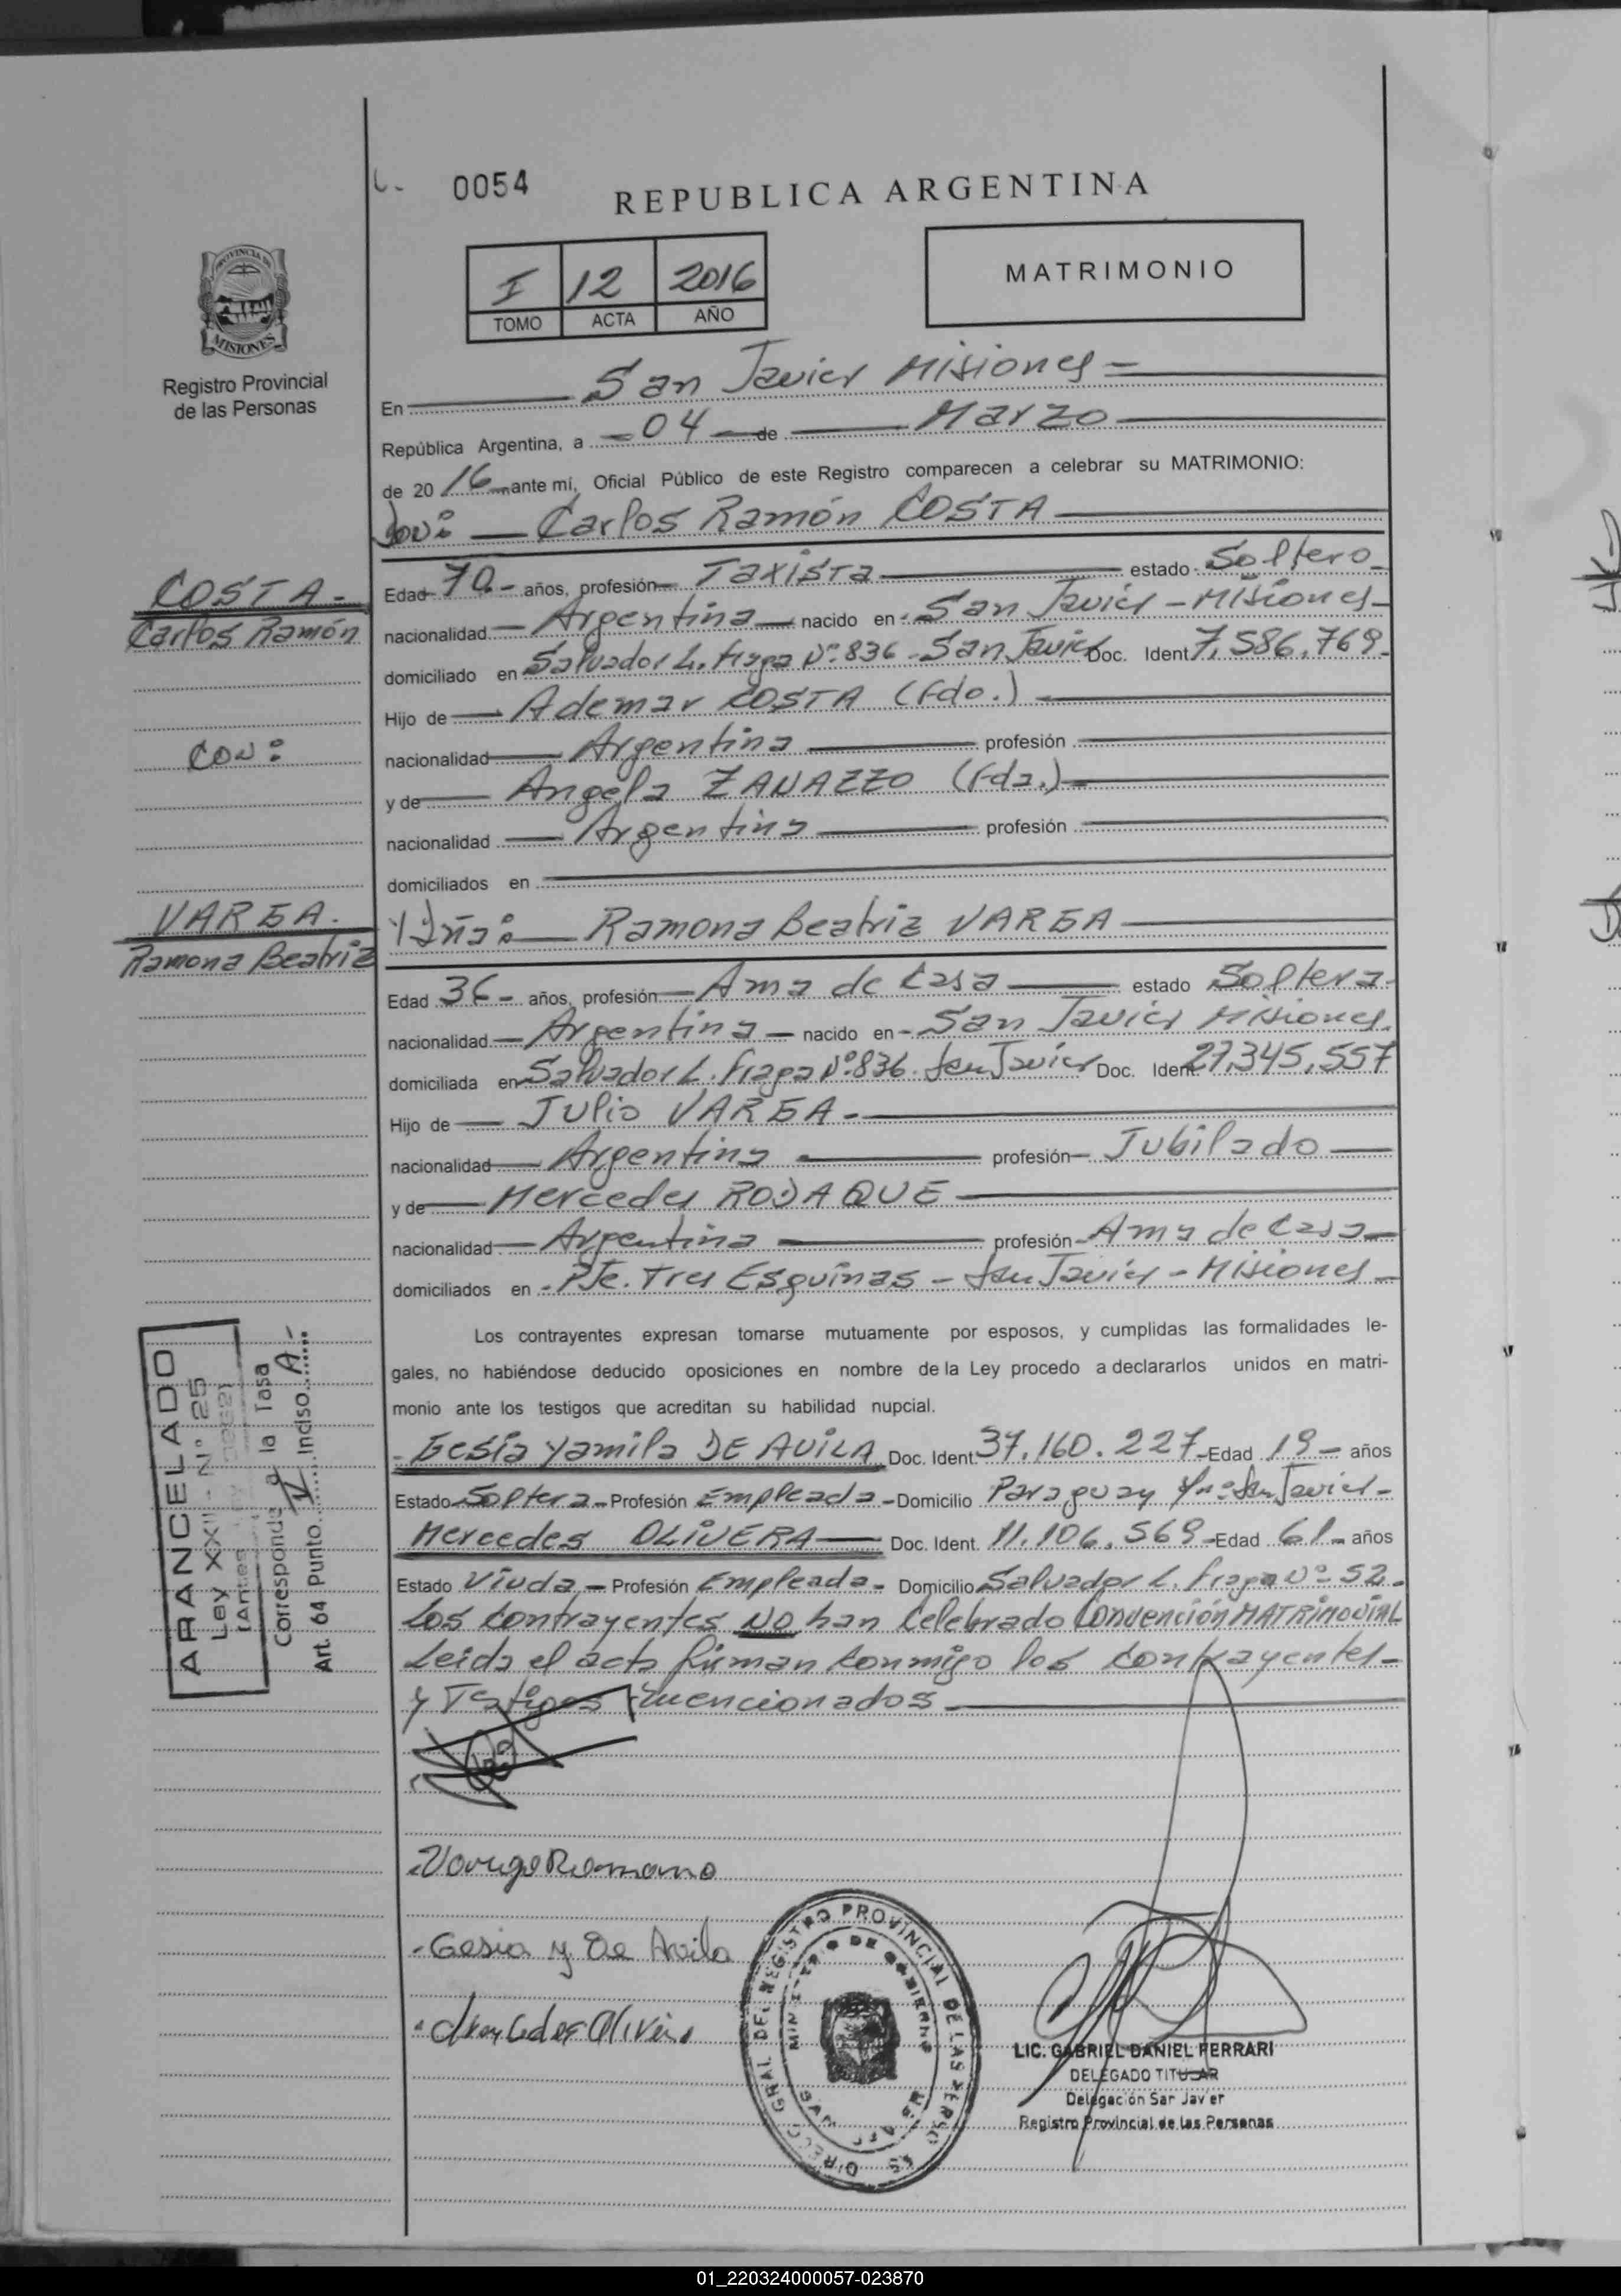 0054
REPUBLICA ARGENTINA
I 12 2016
TOMO ACTA AÑO
MATRIMONIO
PROVINCIA DE
MISIONES
Registro Provincial
de las Personas
En San Javier Misiones
República Argentina, a 04 de Marzo
de 2016 ante mí, Oficial Público de este Registro comparecen a celebrar su MATRIMONIO:
Carlos Ramón COSTA
COSTA
Carlos Ramón
Edad 70 años, profesión Taxista estado Soltero
nacionalidad Argentina nacido en San Javier - Misiones
domiciliado en Salvador L. Fraga Nº 836 - San Javier Doc. Ident 7.586.769
Hijo de Ademar COSTA (Fdo.)
con:
nacionalidad Argentina profesión
y de Angela ZANAZZO (Fda.)
nacionalidad Argentina profesión
domiciliados en
VARGA.
Ramona Beatriz
Ramona Beatriz VARGA
Edad 36 años, profesión Ama de Casa estado Soltera
nacionalidad Argentina nacido en San Javier Misiones
domiciliada en Salvador L. Fraga Nº 836 - San Javier Doc. Ident. 27.345.557
Hijo de Julio VARGA
nacionalidad Argentina profesión Jubilado
y de Mercedes RODAQUE
nacionalidad Argentina profesión Ama de Casa
domiciliados en Pje. Tres Esquinas - San Javier - Misiones
Los contrayentes expresan tomarse mutuamente por esposos, y cumplidas las formalidades le-
gales, no habiéndose deducido oposiciones en nombre de la Ley procedo a declararlos unidos en matri-
monio ante los testigos que acreditan su habilidad nupcial.
Gesia Yamila DE AVILA Doc. Ident. 37.160.227 Edad 19 años
Estado Soltera Profesión Empleada Domicilio Paraguay San Javier
Mercedes OLIVERA Doc. Ident. 11.106.569 Edad 61 años
Estado Viuda Profesión Empleada Domicilio Salvador L. Fraga Nº 52
Los contrayentes NO han Celebrado CONVENCIÓN MATRIMONIAL
Leida el acta firman conmigo los contrayentes
y Testigos mencionados
ARANCELADO
Ley XXII - Nº 25
(Antes
Corresponde a la Tasa
Art. 64 Punto V Inciso A
Varga Ramona
Gesia y De Avila
Mercedes Olivera
DIRECC. GRAL DEL REGISTRO PROVINCIAL DE LAS PERSONAS
MINISTERIO DE GOBIERNO
LIC. GABRIEL DANIEL FERRARI
DELEGADO TITULAR
Delegación San Javier
Registro Provincial de las Personas
01_220324000057-023870